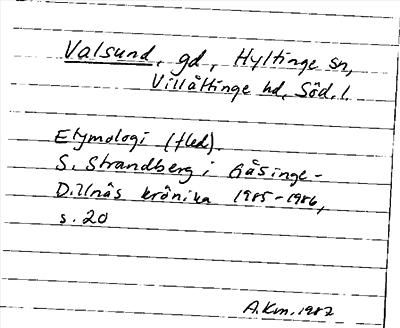 Valsund, gd, Hyltinge sn,
Villåttinge hd, Söd. l.
Etymologi (fled).
S. Strandberg i Gåsinge-
Dillnäs krönika 1985-1986,
s. 20
A.Km. 1987